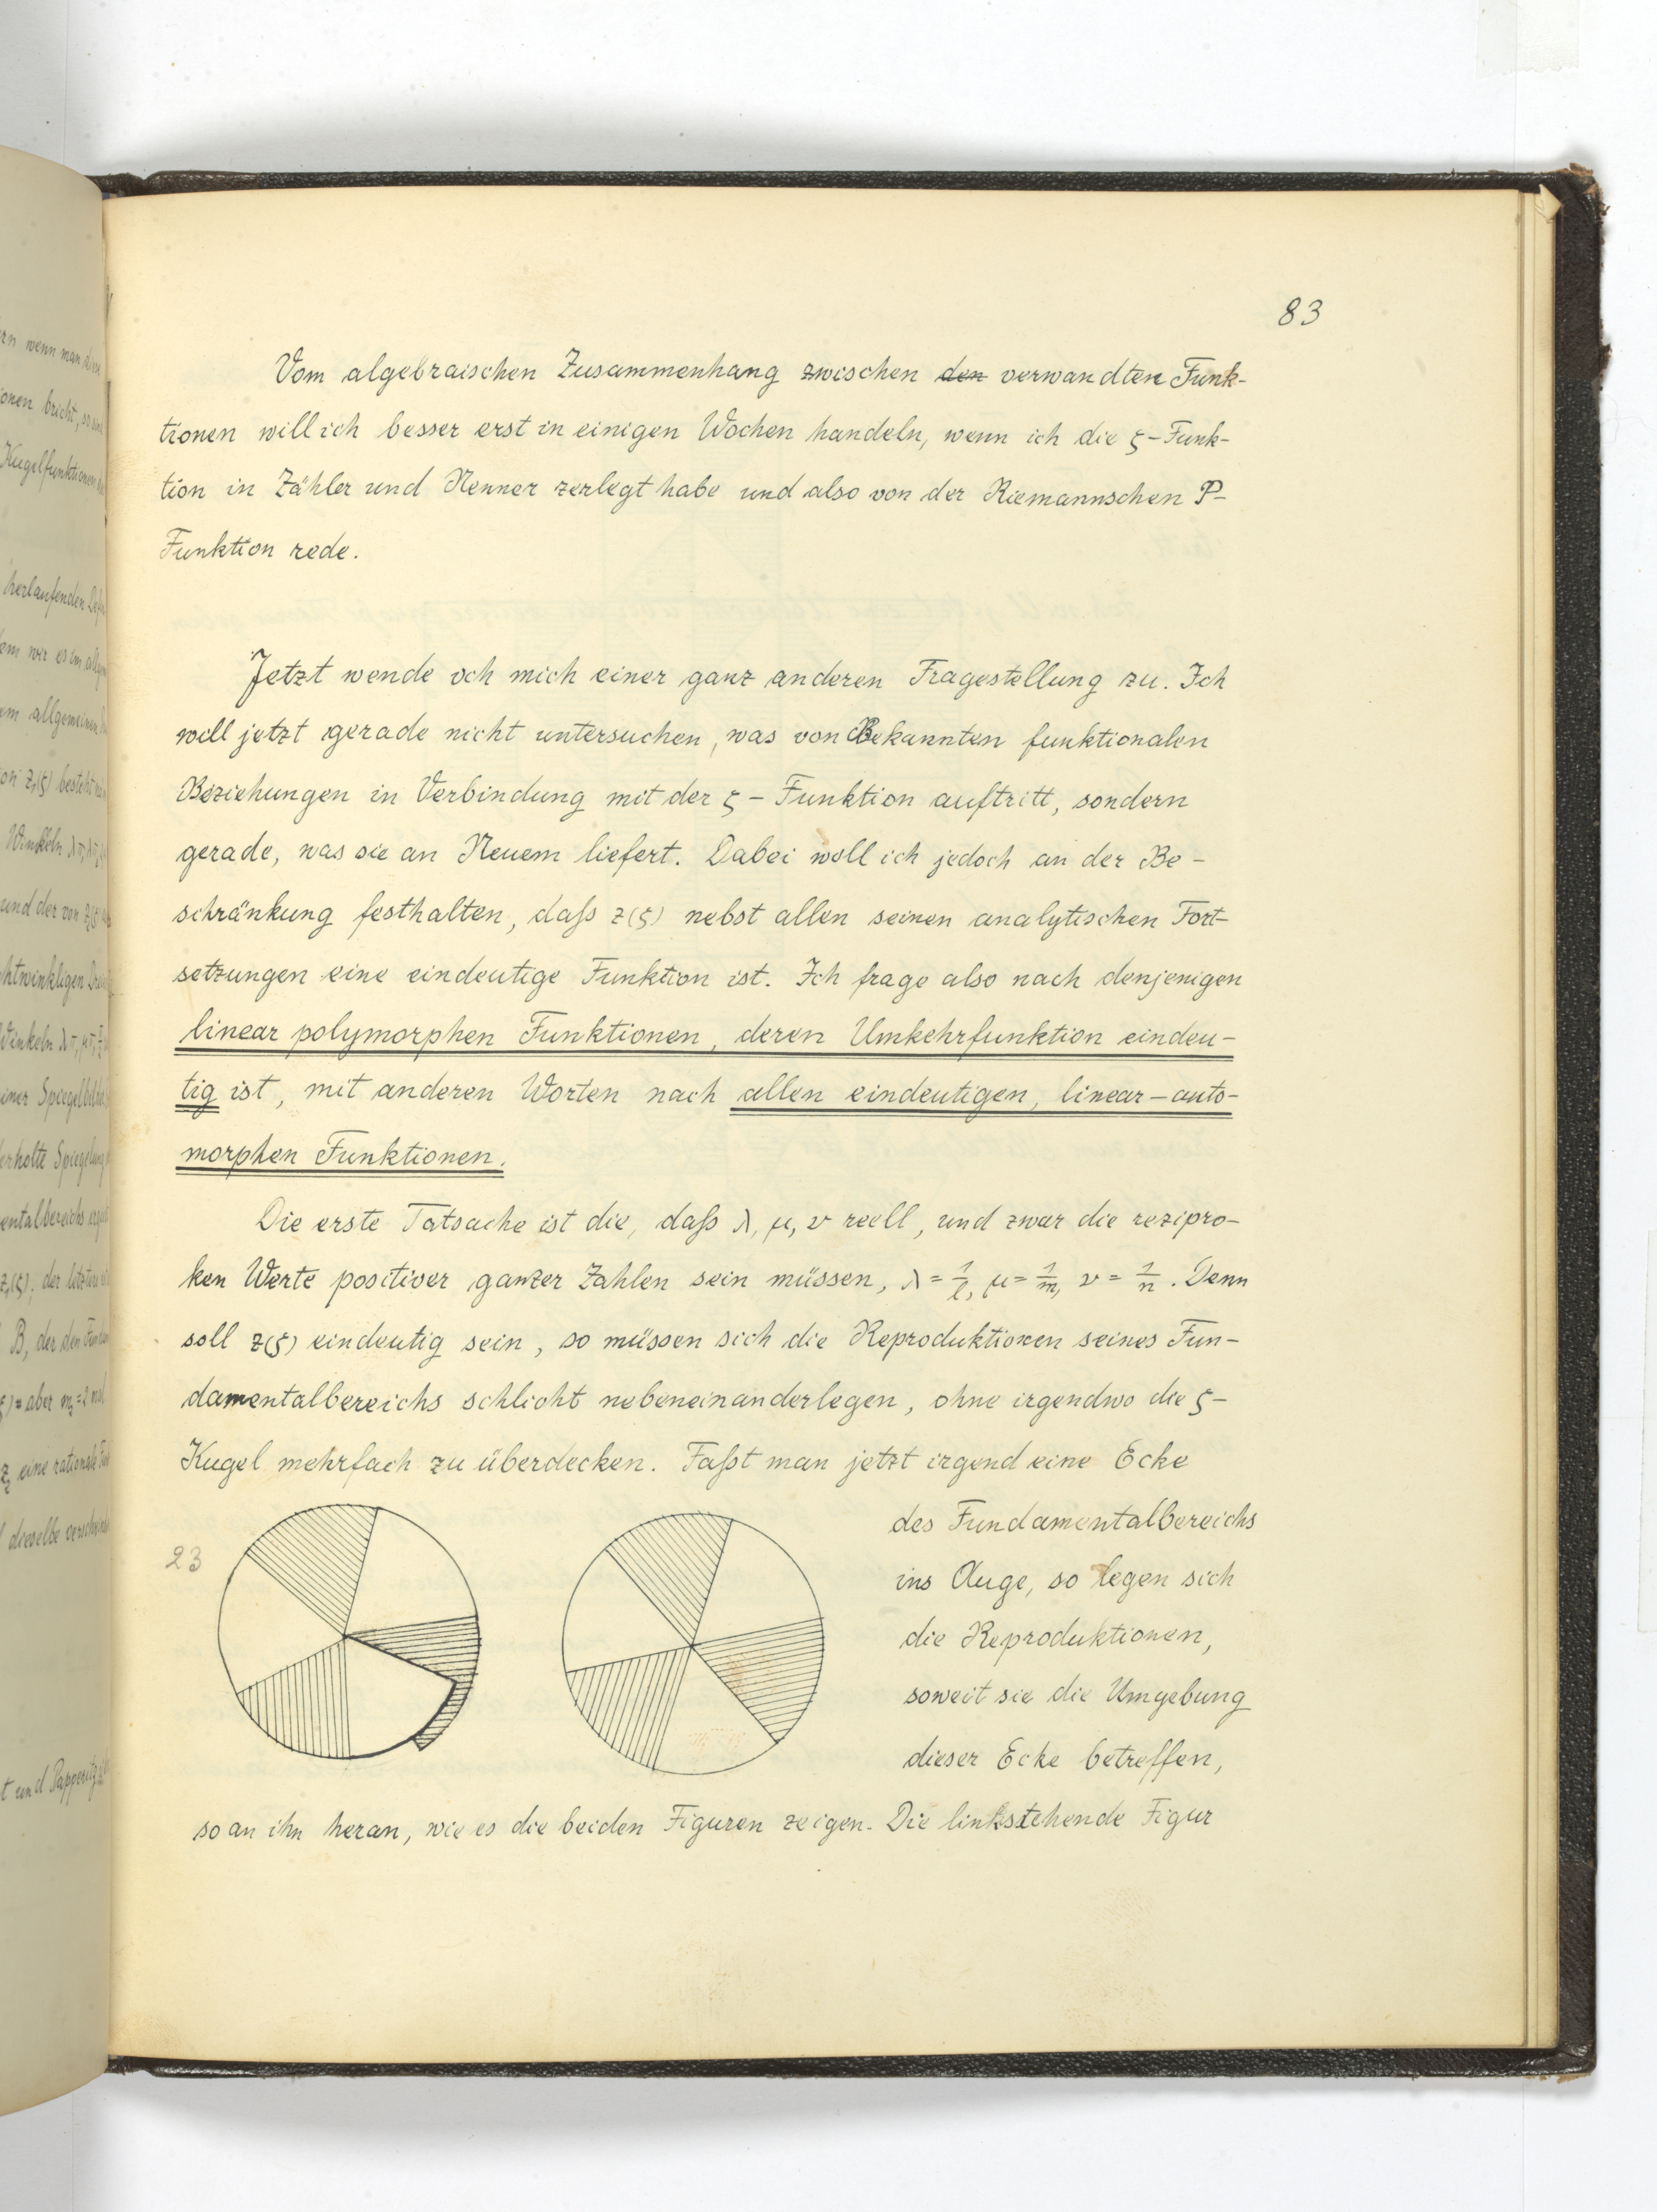 83
Vom algebraischen Zusammenhang zwischen den verwandten Funk-
tionen will ich besser erst in einigen Wochen handeln, wenn ich die ζ-Funk-
tion in Zähler und Nenner zerlegt habe und also von der Riemannschen P-
Funktion rede.
Jetzt wende ich mich einer ganz anderen Fragestellung zu. Ich
will jetzt gerade nicht untersuchen, was von Bekannten funktionalen
Beziehungen in Verbindung mit der ζ-Funktion auftritt, sondern
gerade, was sie an Neuem liefert. Dabei will ich jedoch an der Be-
schränkung festhalten, daß z(ζ) nebst allen seinen analytischen Fort-
setzungen eine eindeutige Funktion ist. Ich frage also nach denjenigen
linear polymorphen Funktionen, deren Umkehrfunktion eindeu-
tig ist, mit anderen Worten nach allen eindeutigen, linear-auto-
morphen Funktionen.
Die erste Tatsache ist die, daß λ, μ, ν reell, und zwar die rezipro-
ken Werte positiver ganzer Zahlen sein müssen, λ = 1/l, μ = 1/m, ν = 1/n. Denn
soll z(ζ) eindeutig sein, so müssen sich die Reproduktionen seines Fun-
damentalbereichs schlicht nebeneinanderlegen, ohne irgendwo die ζ-
Kugel mehrfach zu überdecken. Faßt man jetzt irgend eine Ecke
des Fundamentalbereichs
23
ins Auge, so legen sich
die Reproduktionen,
soweit sie die Umgebung
dieser Ecke betreffen,
so an ihn heran, wie es die beiden Figuren zeigen. Die linksstehende Figur